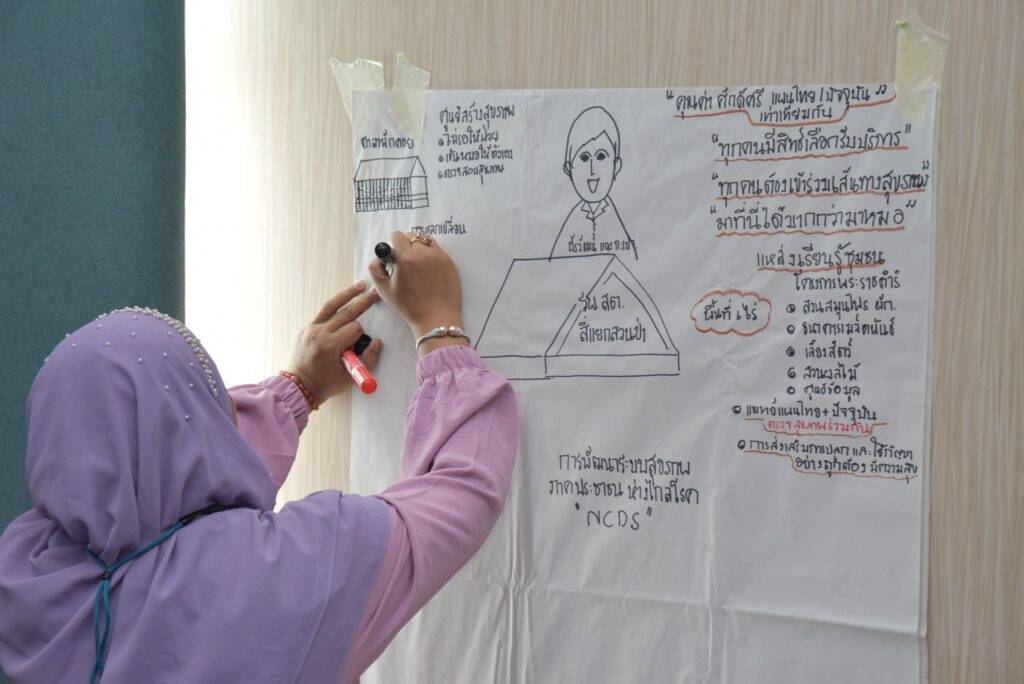 ศาลาพักคอย
ศูนย์สร้างสุขภาพ
• ไม่รอให้ป่วย
• เป็นหมอให้ตัวเอง
• ตรวจสอบสุขภาพ
การแลกเปลี่ยน
รพ.สต.
สี่แยกสวนป่า
การพัฒนาระบบสุขภาพ
ภาคประชาชน ห่างไกลโรค
"NCDS"
"คุณค่า ศักดิ์ศรี แผนไทย/ปัจจุบัน"
เท่าเทียมกัน
"ทุกคนมีสิทธเลือกรับบริการ"
"ทุกคนต้องเข้าร่วมเส้นทางสุขภาพ"
"มาที่นี่ได้มากกว่ามาหมอ"
แหล่งเรียนรู้ชุมชน
โครงการพระราชดำริ
พื้นที่ 6 ไร่
• สวนสมุนไพร ผัก.
• ธนาคารเมล็ดพันธ์
• เลี้ยงสัตว์
• สวนผลไม้
• ศูนย์ข้อมูล
• แพทย์แผนไทย + ปัจจุบัน
ตรวจสุขภาพร่วมกัน
• การส่งเสริมการปลูก และใช้
อย่างถูกต้อง มีความสุข